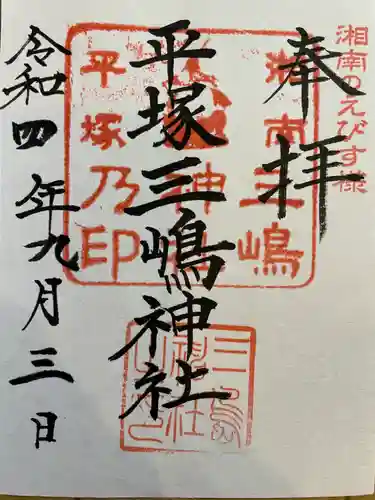 湘南のえびす様
奉拝
平塚三嶋神社
令和四年九月三日
湘南三嶋
神
平塚乃印
三島
神社